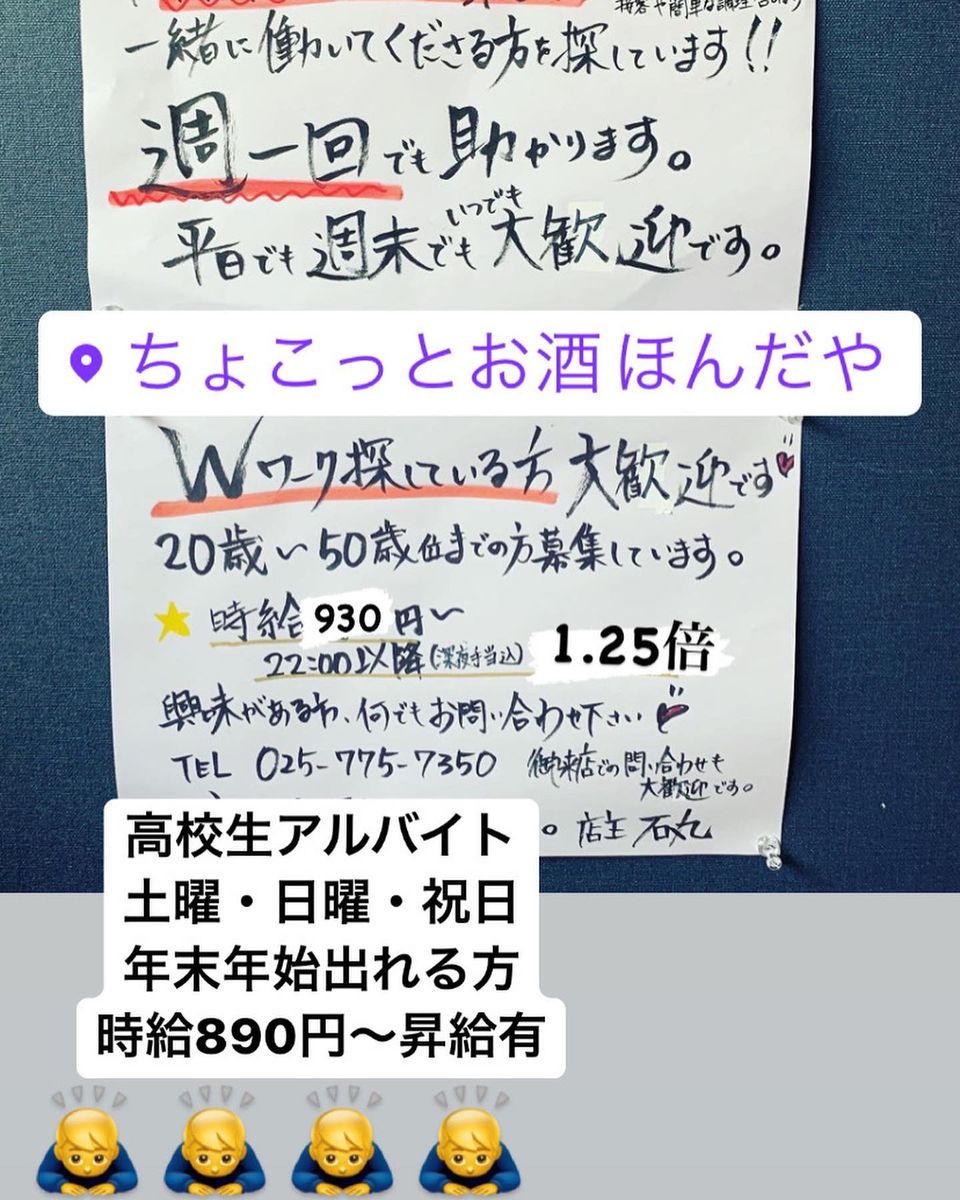 接客や簡単な調理含む
一緒に働いてくださる方を探しています!!
週一回でも助かります。
いつでも
平日でも週末でも大歓迎です。
ちょこっとお酒 ほんだや
Wワーク探している方 大歓迎です
20歳〜50歳位までの方募集しています。
時給930円〜
22:00以降(深夜手当込) 1.25倍
興味がある方、何でもお問い合わせ下さい
TEL 025-775-7350 御来店での問い合わせも
大歓迎です。
。店主 石丸
高校生アルバイト
土曜・日曜・祝日
年末年始出れる方
時給890円〜昇給有